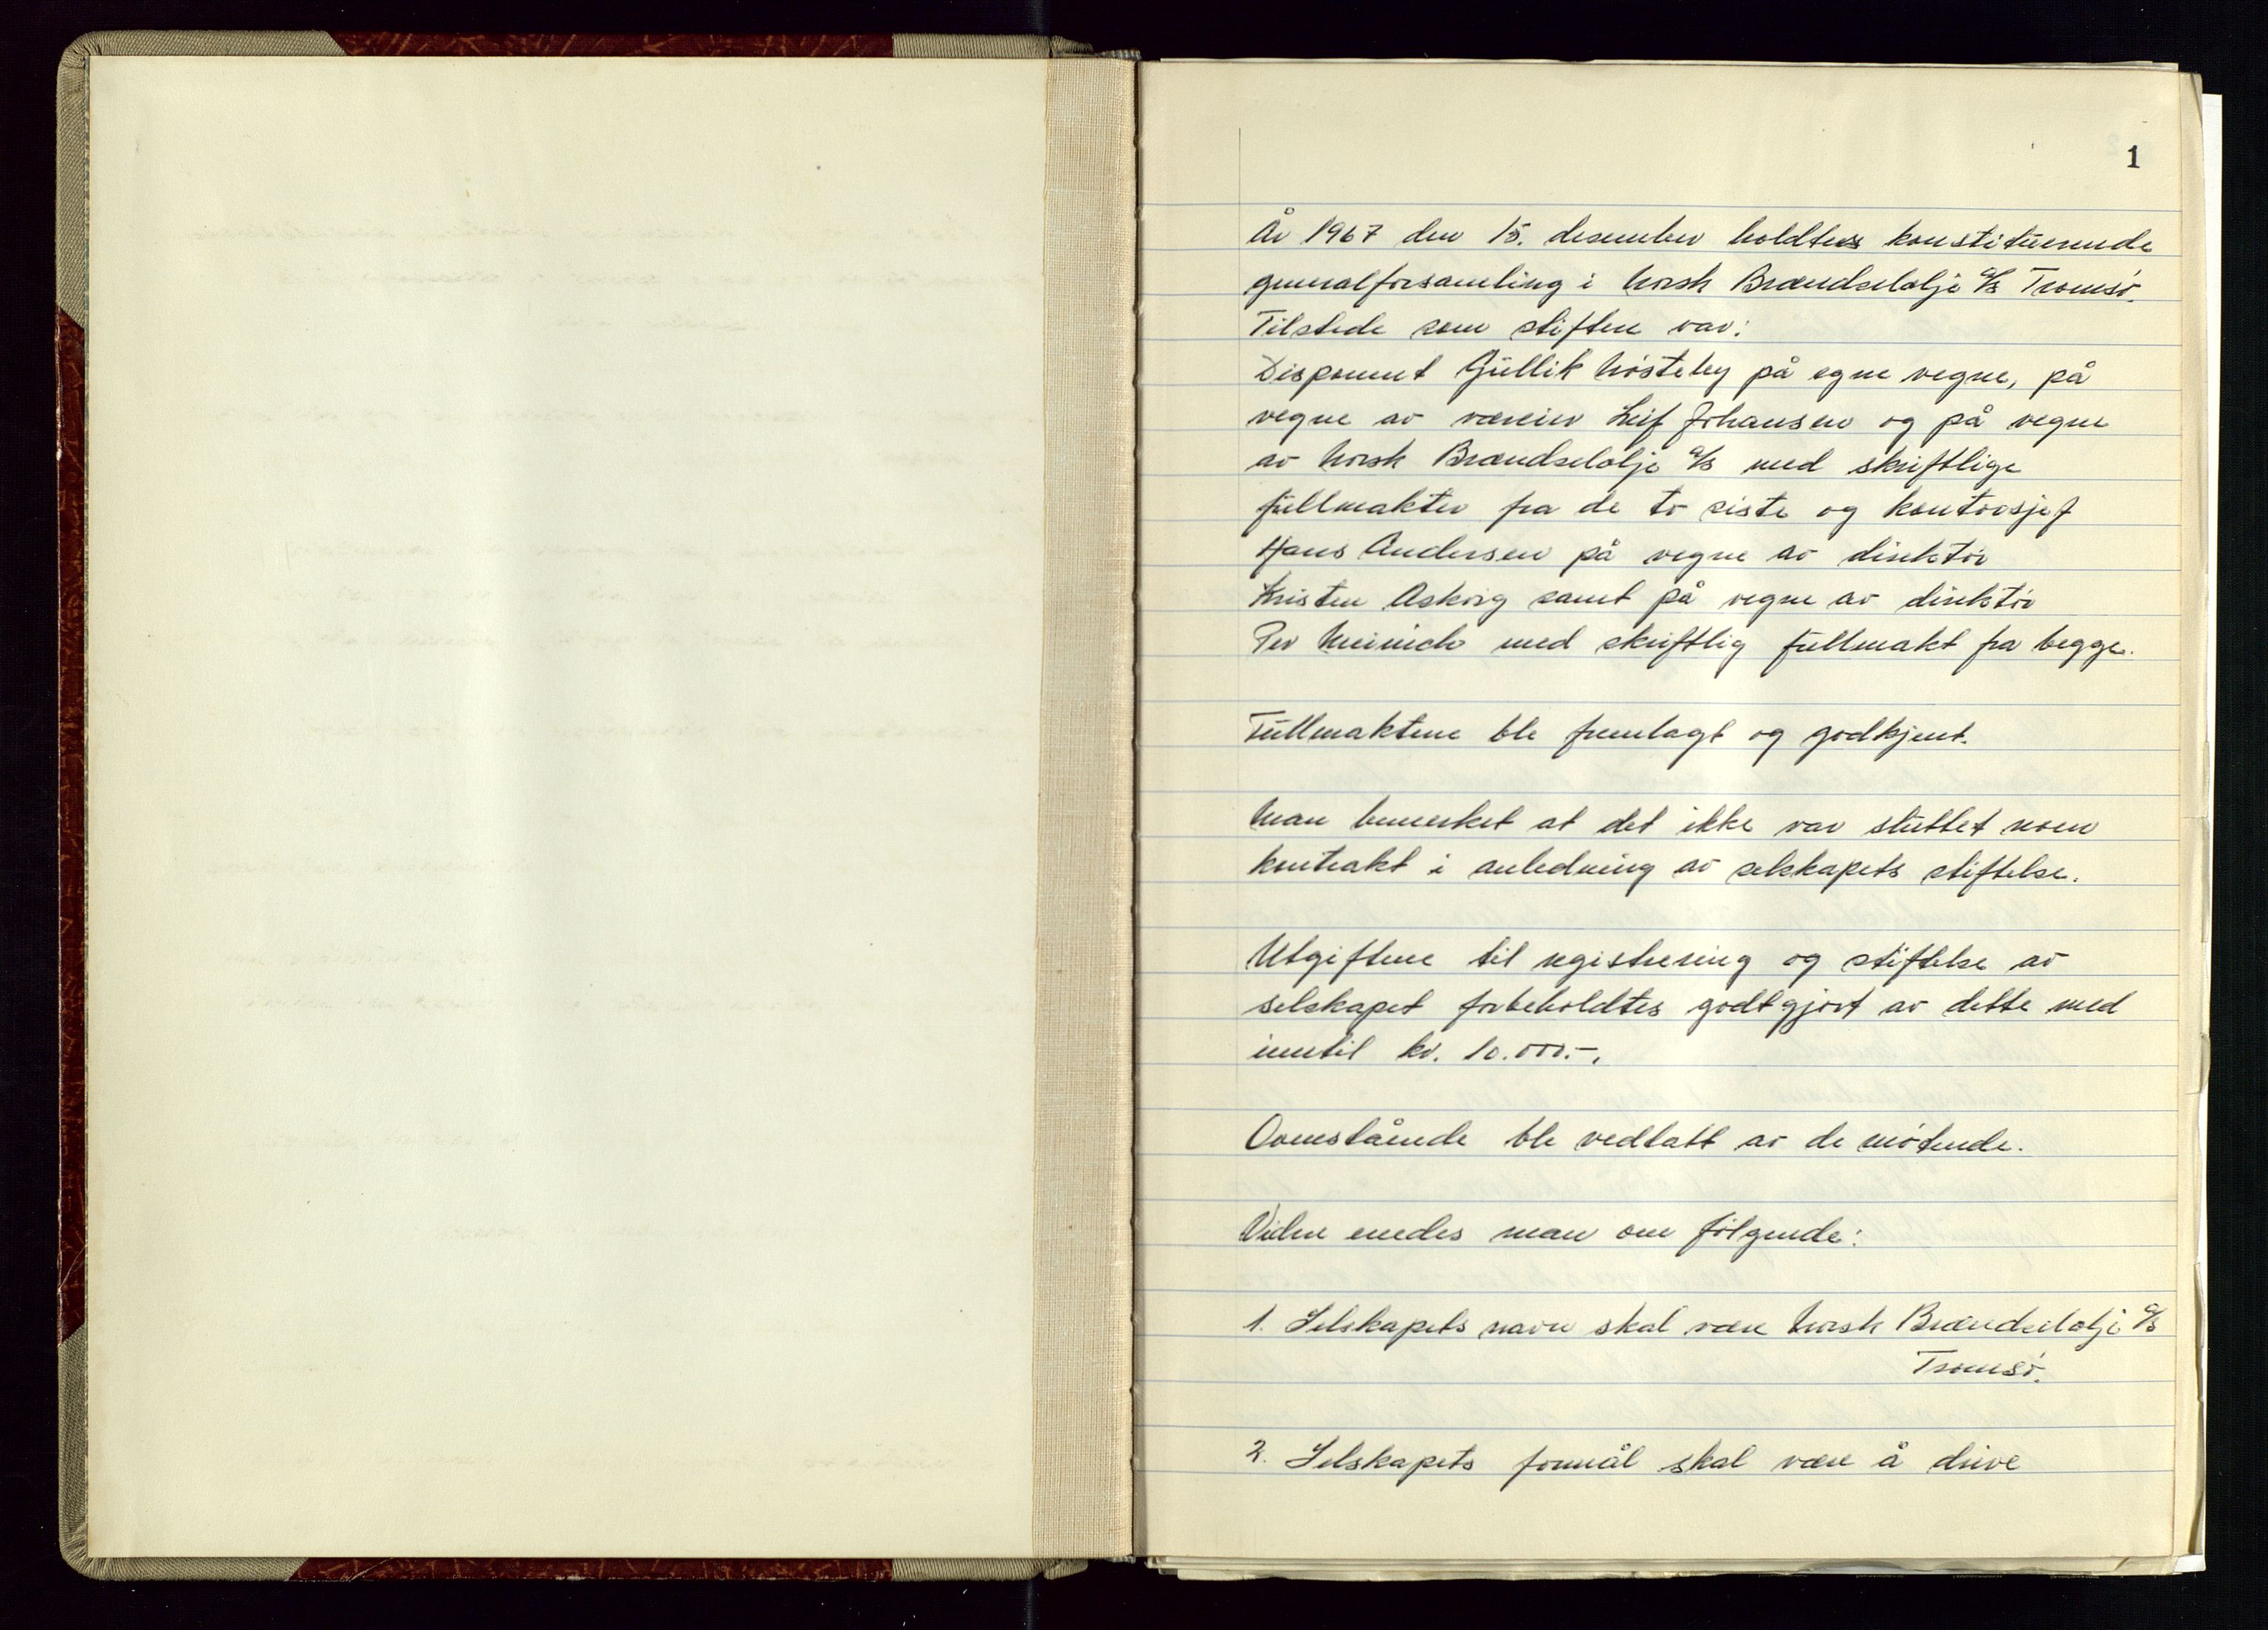 1
År 1967 den 15. desember holdtes konstituerende
generalforsamling i Norsk Brændselolje A/S Tromsø.
Tilstede som stiftere var:
Disponent Gullik Nösteby på egne vegne, på
vegne av væreier Leif Johansen og på vegne
av Norsk Brændselolje A/S med skriftlige
fullmakter fra de to siste og kontorsjef
Hans Andersen på vegne av direktør
Kristen Askvig samt på vegne av direktør
Per Meinich med skriftlig fullmakt fra begge.
Fullmaktene ble fremlagt og godkjent.
Man bemerket at det ikke var sluttet noen
kontrakt i anledning av selskapets stiftelse.
Utgiftene til registrering og stiftelse av
selskapet forbeholdtes godtgjort av dette med
inntil kr. 10.000.-.
Ovenstående ble vedtatt av de møtende.
Videre enedes man om følgende:
1. Selskapets navn skal være Norsk Brændselolje A/S
Tromsø.
2. Selskapets formål skal være å drive